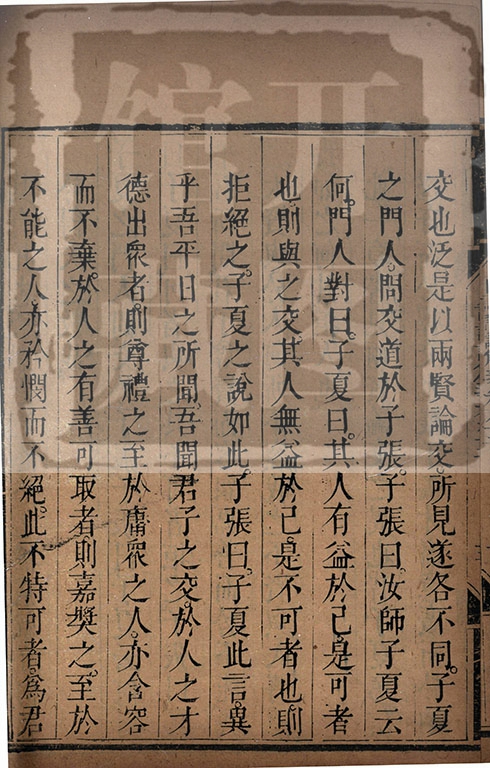 交也泛是以兩賢論交所見遂各不同子夏
之門人問交道於子張子張曰汝師子夏云
何門人對曰子夏曰其人有益於己是可者
也則與之交其人無益於己是不可者也則
拒絕之子夏之說如此子張曰子夏此言異
乎吾平日之所聞吾聞君子之交於人之才
德出眾者則尊禮之至於庸眾之人亦含容
而不棄於人之有善可取者則嘉獎之至於
不能之人亦矜憫而不絕此不特可者為君